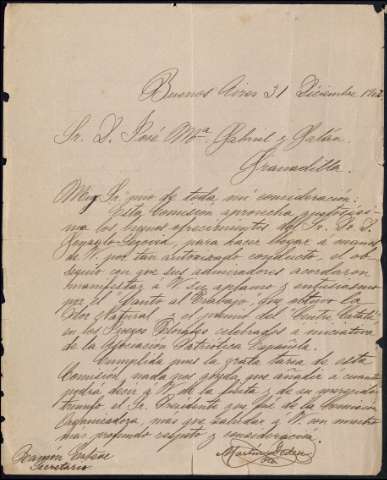 Buenos Aires 31 Diciembre
Sr. D. José Mª Gabriel y Galán
Granadilla.
Muy Sr. mio de toda mi consideración:
Esta Comision aprovecha
ma los buenos ofrecimientos del Sr. Dr. D.
Gonzalo Segovia, para hacer llegar a manos
de V. por tan autorizado conducto, el ob
sequio con que sus admiradores acordaron
manifestar á V. su aplauso y entusiasmo
por el Canto al Trabajo, que obtuvo la
Flor Natural y el premio del
en los Juegos Florales celebrados á iniciativa
de la Asociación Patriótica Española.
Cumplida pues la grata tarea de esta
Comisión, nada nos queda que añadir á cuanto
podrá decir á V. de la fiesta y de su
triunfo el Sr. Presidente que fué de la Comision
Organizadora, mas que saludar á V. con nuestro
mas profundo respeto y consideracion.
Ramón
Secretario